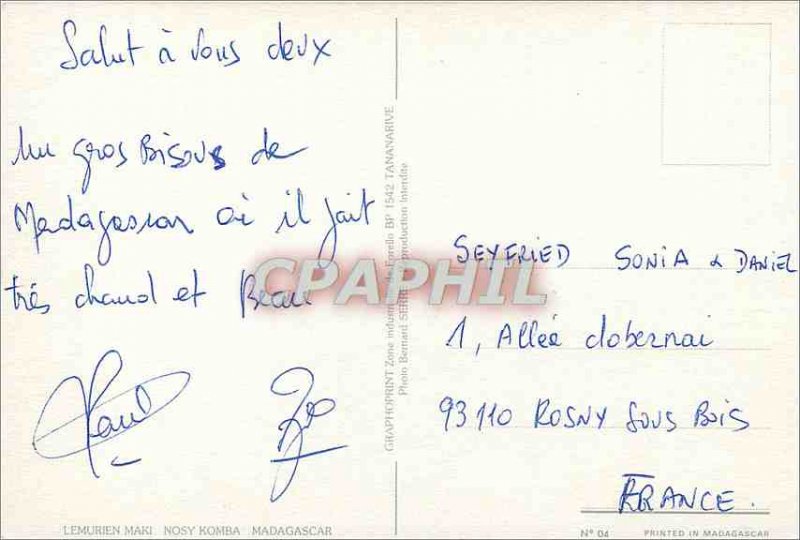 Salut à vous deux
Un gros Bisous de
Madagascar où il fait
très chaud et Beau
SEYFRIED SONIA & DANIEL
1, Allée dobernai
93110 ROSNY SOUS BOIS
FRANCE.
CPAPHIL
GRAPHOPRINT Zone industrielle de Forello BP 1542 TANANARIVE
Photo Bernard SERR Reproduction interdite
LEMURIEN MAKI NOSY KOMBA MADAGASCAR
N° 04 PRINTED IN MADAGASCAR